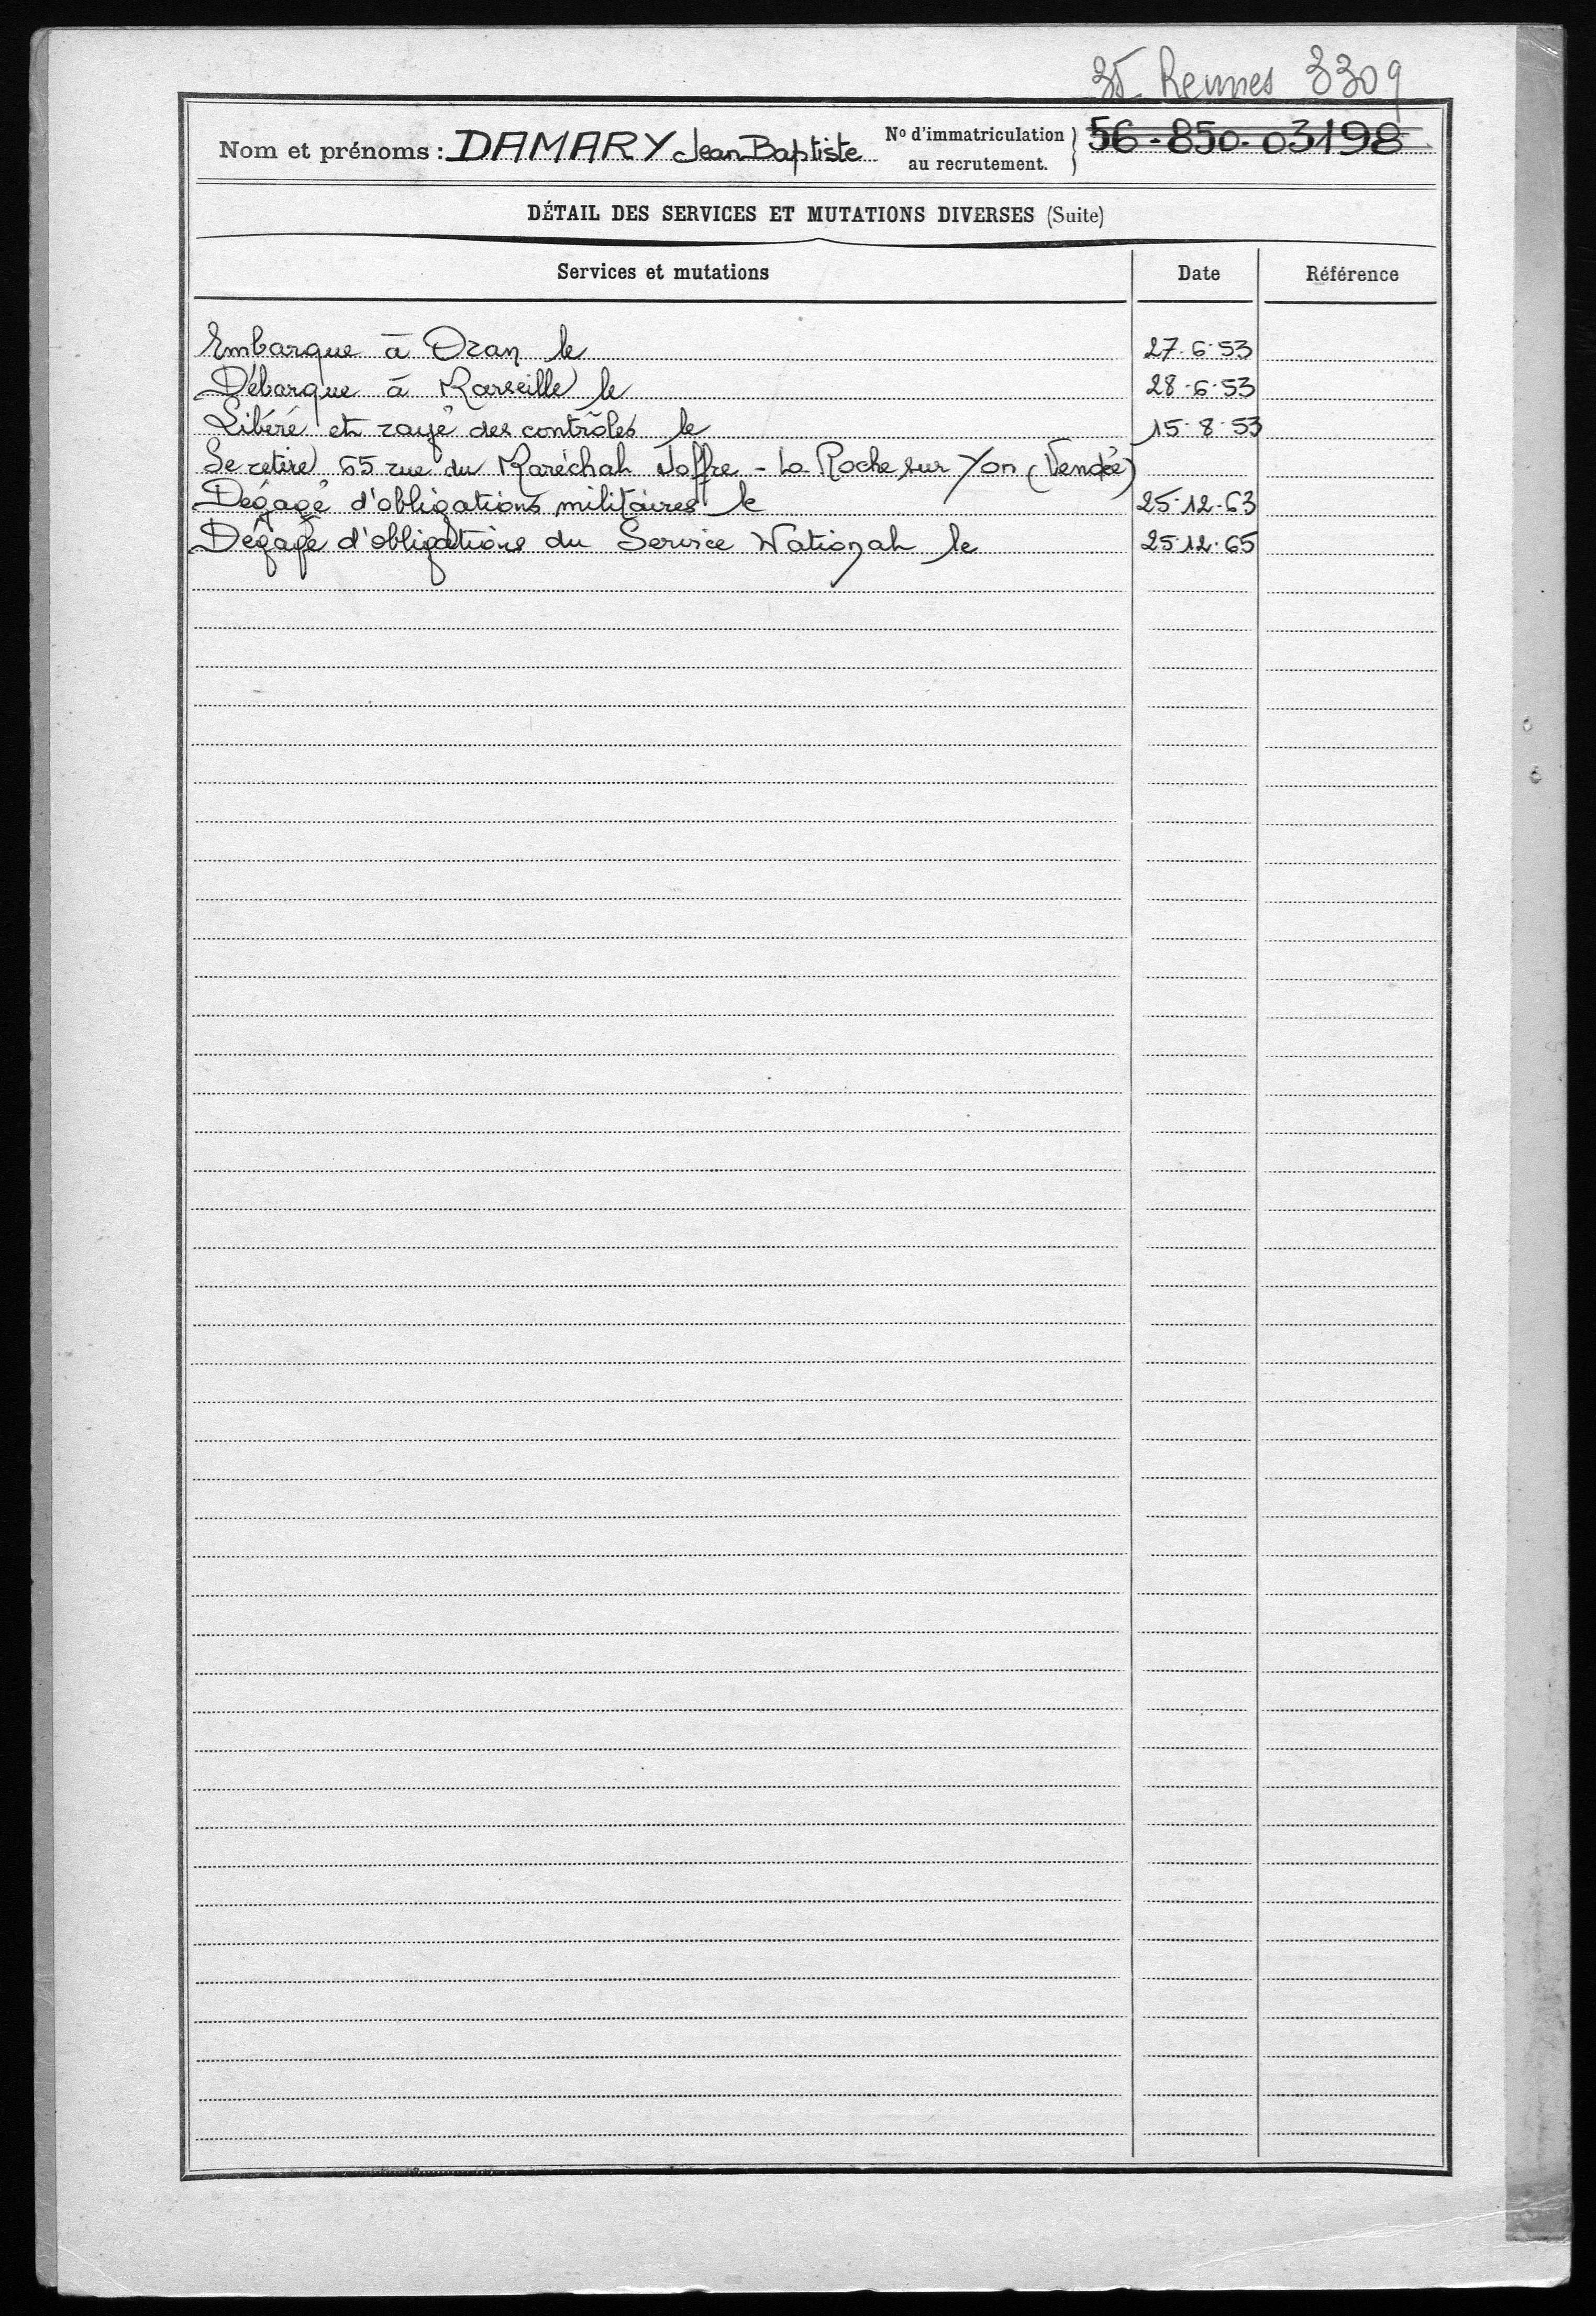 35 Rennes 3309
Nom et prénoms : DAMARY Jean Baptiste N° d'immatriculation au recrutement. } 56-850-03198
DÉTAIL DES SERVICES ET MUTATIONS DIVERSES (Suite)
Services et mutations Date Référence
Embarque à Oran le 27-6-53
Débarque à Marseille le 28-6-53
Libéré et rayé des contrôles le 15-8-53
Se retire 65 rue du Maréchal Joffre - La Roche sur Yon (Vendée)
Dégagé d'obligations militaires le 25-12-63
Dégagé d'obligations du Service National le 25-12-65